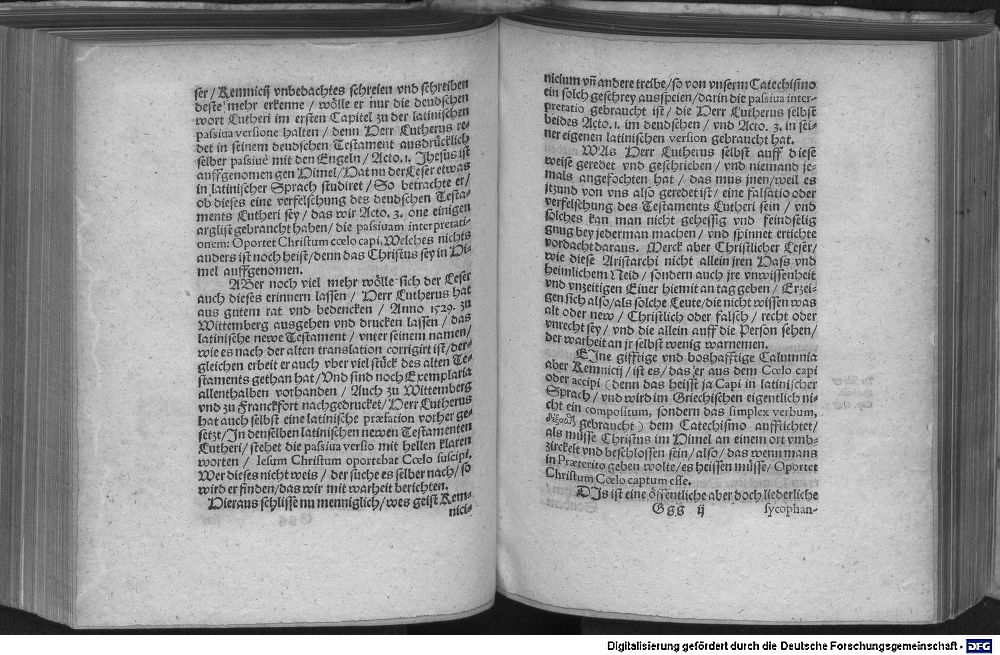 ser / Kemnicij vnbedachtes schreien vnd schreiben
deste mehr erkenne / wölle er nur die deudschen
wort Lutheri im ersten Capitel zu der latinischen
passiua versione halten / denn Herr Lutherus re-
det in seinem deudschen Testament ausdrücklich
selber passiuè mit den Engeln / Acto. 1. Jhesus ist
auffgenomen gen Himel / Hat nu der Leser etwas
in latinischer Sprach studiret / So betrachte er /
ob dieses eine verfelschung des deudschen Testa-
ments Lutheri sey / das wir Acto. 3. one einigen
arglist gebraucht haben / die passiuam interpretati-
onem: Oportet Christum cœlo capi, Welches nichts
anders ist noch heist / denn das Christus sey in Hi-
mel auffgenomen.
ABer noch viel mehr wölle sich der Leser
auch dieses erinnern lassen / Herr Lutherus hat
aus gutem rat vnd bedencken / Anno 1529. zu
Wittemberg ausgehen vnd drucken lassen / das
latinische newe Testament / vnter seinem namen /
wie es nach der alten translation corrigirt ist / der-
gleichen erbeit er auch vber viel stück des alten Te-
staments gethan hat / Vnd sind noch Exemplaria
allenthalben vorhanden / Auch zu Wittemberg
vnd zu Franckfort nachgedrucket / Herr Lutherus
hat auch selbst eine latinische præfation vorher ge-
setzt / In denselben latinischen newen Testamenten
Lutheri / stehet die passiua versio mit hellen klaren
worten / Iesum Christum oportebat Cœlo suscipi,
Wer dieses nicht weis / der suche es selber nach / so
wird er finden / das wir mit warheit berichten.
Hieraus schlisse nu menniglich / wes geist Kem-
nici-
nicium vñ andere treibe / so von vnserm Catechismo
ein solch geschrey ausspeien / darin die passiua inter-
pretatio gebraucht ist / die Herr Lutherus selbst
beides Acto. 1. im deudschen / vnd Acto. 3. in sei-
ner eigenen latinischen version gebraucht hat.
WAs Herr Lutherus selbst auff diese
weise geredet vnd geschrieben / vnd niemand je-
mals angefochten hat / das mus jnen / weil es
itzund von vns also geredet ist / eine falsatio oder
verfelschung des Testaments Lutheri sein / vnd
solches kan man nicht gehessig vnd feindselig
gnug bey jederman machen / vnd spinnet ertichte
vordacht daraus. Merck aber Christlicher Leser /
wie diese Aristarchi nicht allein jren Hass vnd
heimlichem Neid / sondern auch jre vnwissenheit
vnd vnzeitigen Eiuer hiemit an tag geben / Erzei-
gen sich also / als solche Leute / die nicht wissen was
alt oder new / Christlich oder falsch / recht oder
vnrecht sey / vnd die allein auff die Person sehen /
der warheit an jr selbst wenig warnemen.
EIne gifftige vnd boshafftige Calumnia
aber Kemnicij / ist es / das er aus dem Cœlo capi
oder accipi (denn das heisst ja Capi in latinischer
Sprach / vnd wird im Griechischen eigentlich ni-
cht ein compositum, sondern das simplex verbum,
gebraucht) dem Catechismo aufflichtet /
als müsse Christus im Himel an einem ort vmb-
zirckelt vnd beschlossen sein / also / das wenn mans
in Præterito geben wolte / es heissen müsse / Oportet
Christum Cœlo captum esse.
DIs ist eine öffentliche aber doch liederliche
Ggg ij sycophan-
Digitalisierung gefördert durch die Deutsche Forschungsgemeinschaft - DFG